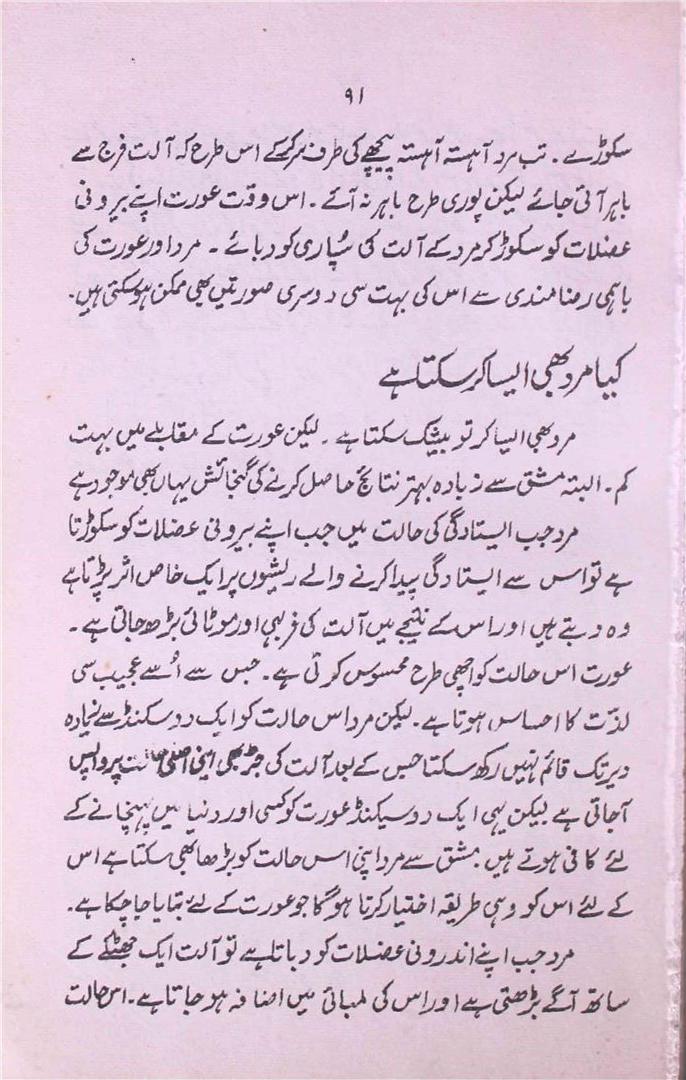 ۹۱
سکوڑے۔ تب مرد آہستہ آہستہ پیچھے کی طرف سرکے اس طرح کہ آلت فرج سے
باہر آتی جائے لیکن پوری طرح باہر نہ آئے۔ اس وقت عورت اپنے بیرونی
عضلات کو سکوڑ کر مرد کے آلت کی سُپاری کو دبائے۔ مرد اور عورت کی
باہمی رضامندی سے اس کی بہت سی دوسری صورتیں بھی ممکن ہو سکتی ہیں۔
کیا مرد بھی ایسا کر سکتا ہے
مرد بھی ایسا کر تو بیشک سکتا ہے۔ لیکن عورت کے مقابلے میں بہت
کم۔ البتہ مشق سے زیادہ بہتر نتائج حاصل کرنے کی گنجائش یہاں بھی موجود ہے
مرد جب ایستادگی کی حالت میں جب اپنے بیرونی عضلات کو سکوڑتا
ہے تو اس سے ایستادگی پیدا کرنے والے ریشوں پر ایک خاص اثر پڑتا ہے
وہ دبتے ہیں اور اس کے نتیجے میں آلت کی فربہی اور موٹائی بڑھ جاتی ہے۔
عورت اس حالت کو اچھی طرح محسوس کرتی ہے۔ جس سے اُسے عجیب سی
لذّت کا احساس ہوتا ہے۔ لیکن مرد اس حالت کو ایک دو سکنڈ سے زیادہ
دیر تک قائم نہیں رکھ سکتا جس کے بعد آلت کی جڑ بھی اپنی اصلی حالت پر واپس
آجاتی ہے لیکن یہی ایک دو سیکنڈ عورت کو کسی اور دنیا میں پہنچانے کے
لئے کافی ہوتے ہیں۔ مشق سے مرد اپنی اس حالت کو بڑھا بھی سکتا ہے اس
کے لئے اس کو وہی طریقہ اختیار کرنا ہوگا جو عورت کے لئے بتایا جاچکا ہے۔
مرد جب اپنے اندرونی عضلات کو دباتا ہے تو آلت ایک جھٹکے کے
ساتھ آگے بڑھتی ہے اور اس کی لمبائی میں اضافہ ہو جاتا ہے۔ اس حالت